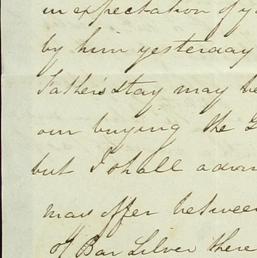 in expectation of y
by him yesterday
Father's stay may be
our buying the G
but I shall advi
may offer betwee
of Bar Silver there